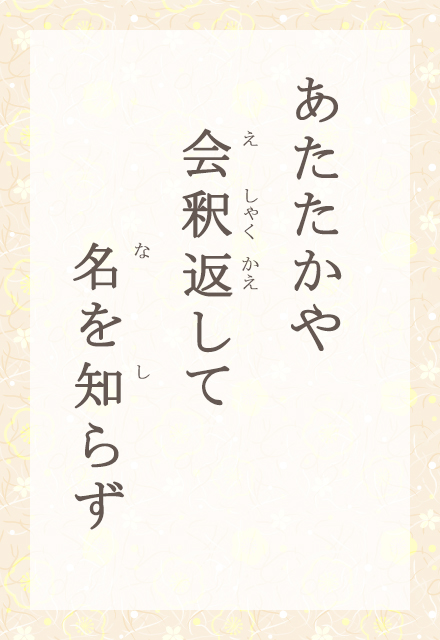 あたたかや
会釈返して
え しゃく かえ
名を知らず
な し